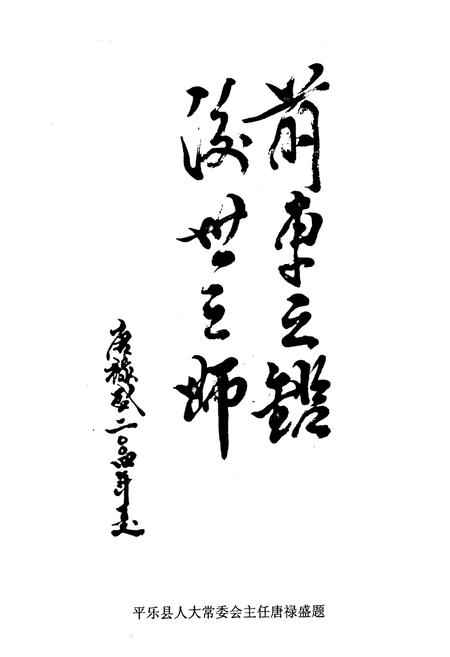 前車之鑑
後世之師
唐禄盛二〇〇四年夏
平乐县人大常委会主任唐禄盛题